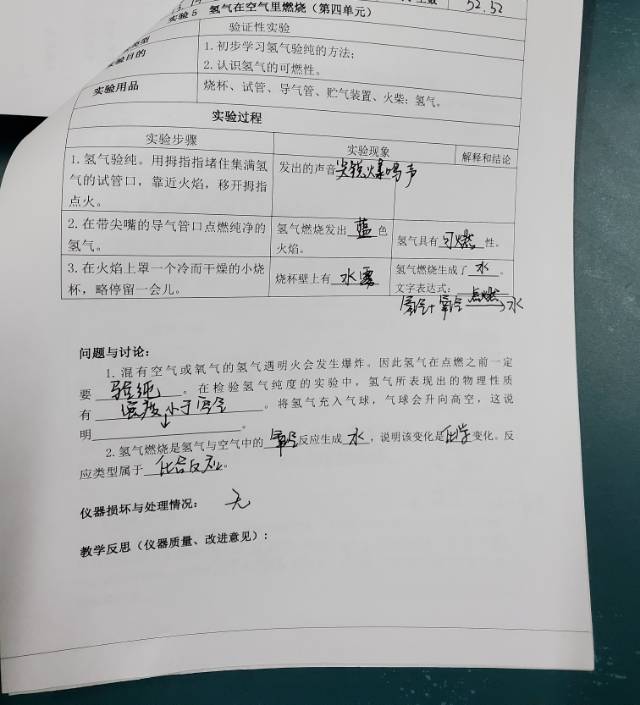 实验5 氢气在空气里燃烧（第四单元） 52.52
类型 验证性实验
实验目的 1.初步学习氢气验纯的方法；
2.认识氢气的可燃性。
实验用品 烧杯、试管、导气管、贮气装置、火柴；氢气。
实验过程
实验步骤 实验现象 解释和结论
1.氢气验纯。用拇指指堵住集满氢 发出的声音尖锐爆鸣声
气的试管口，靠近火焰，移开拇指
点火。
2.在带尖嘴的导气管口点燃纯净的 氢气燃烧发出 蓝 色 氢气具有 可燃 性。
氢气。 火焰。
3.在火焰上罩一个冷而干燥的小烧 烧杯壁上有 水雾 氢气燃烧生成了 水 。
杯，略停留一会儿。 文字表达式：
氢气+氧气 点燃→水
问题与讨论：
1.混有空气或氧气的氢气遇明火会发生爆炸。因此氢气在点燃之前一定
要 验纯 。在检验氢气纯度的实验中，氢气所表现出的物理性质
有 密度小于空气 。将氢气充入气球，气球会升向高空，这说
明 。
2.氢气燃烧是氢气与空气中的 氧气 反应生成 水 ，说明该变化是化学变化。反
应类型属于 化合反应 。
仪器损坏与处理情况： 无
教学反思（仪器质量、改进意见）：